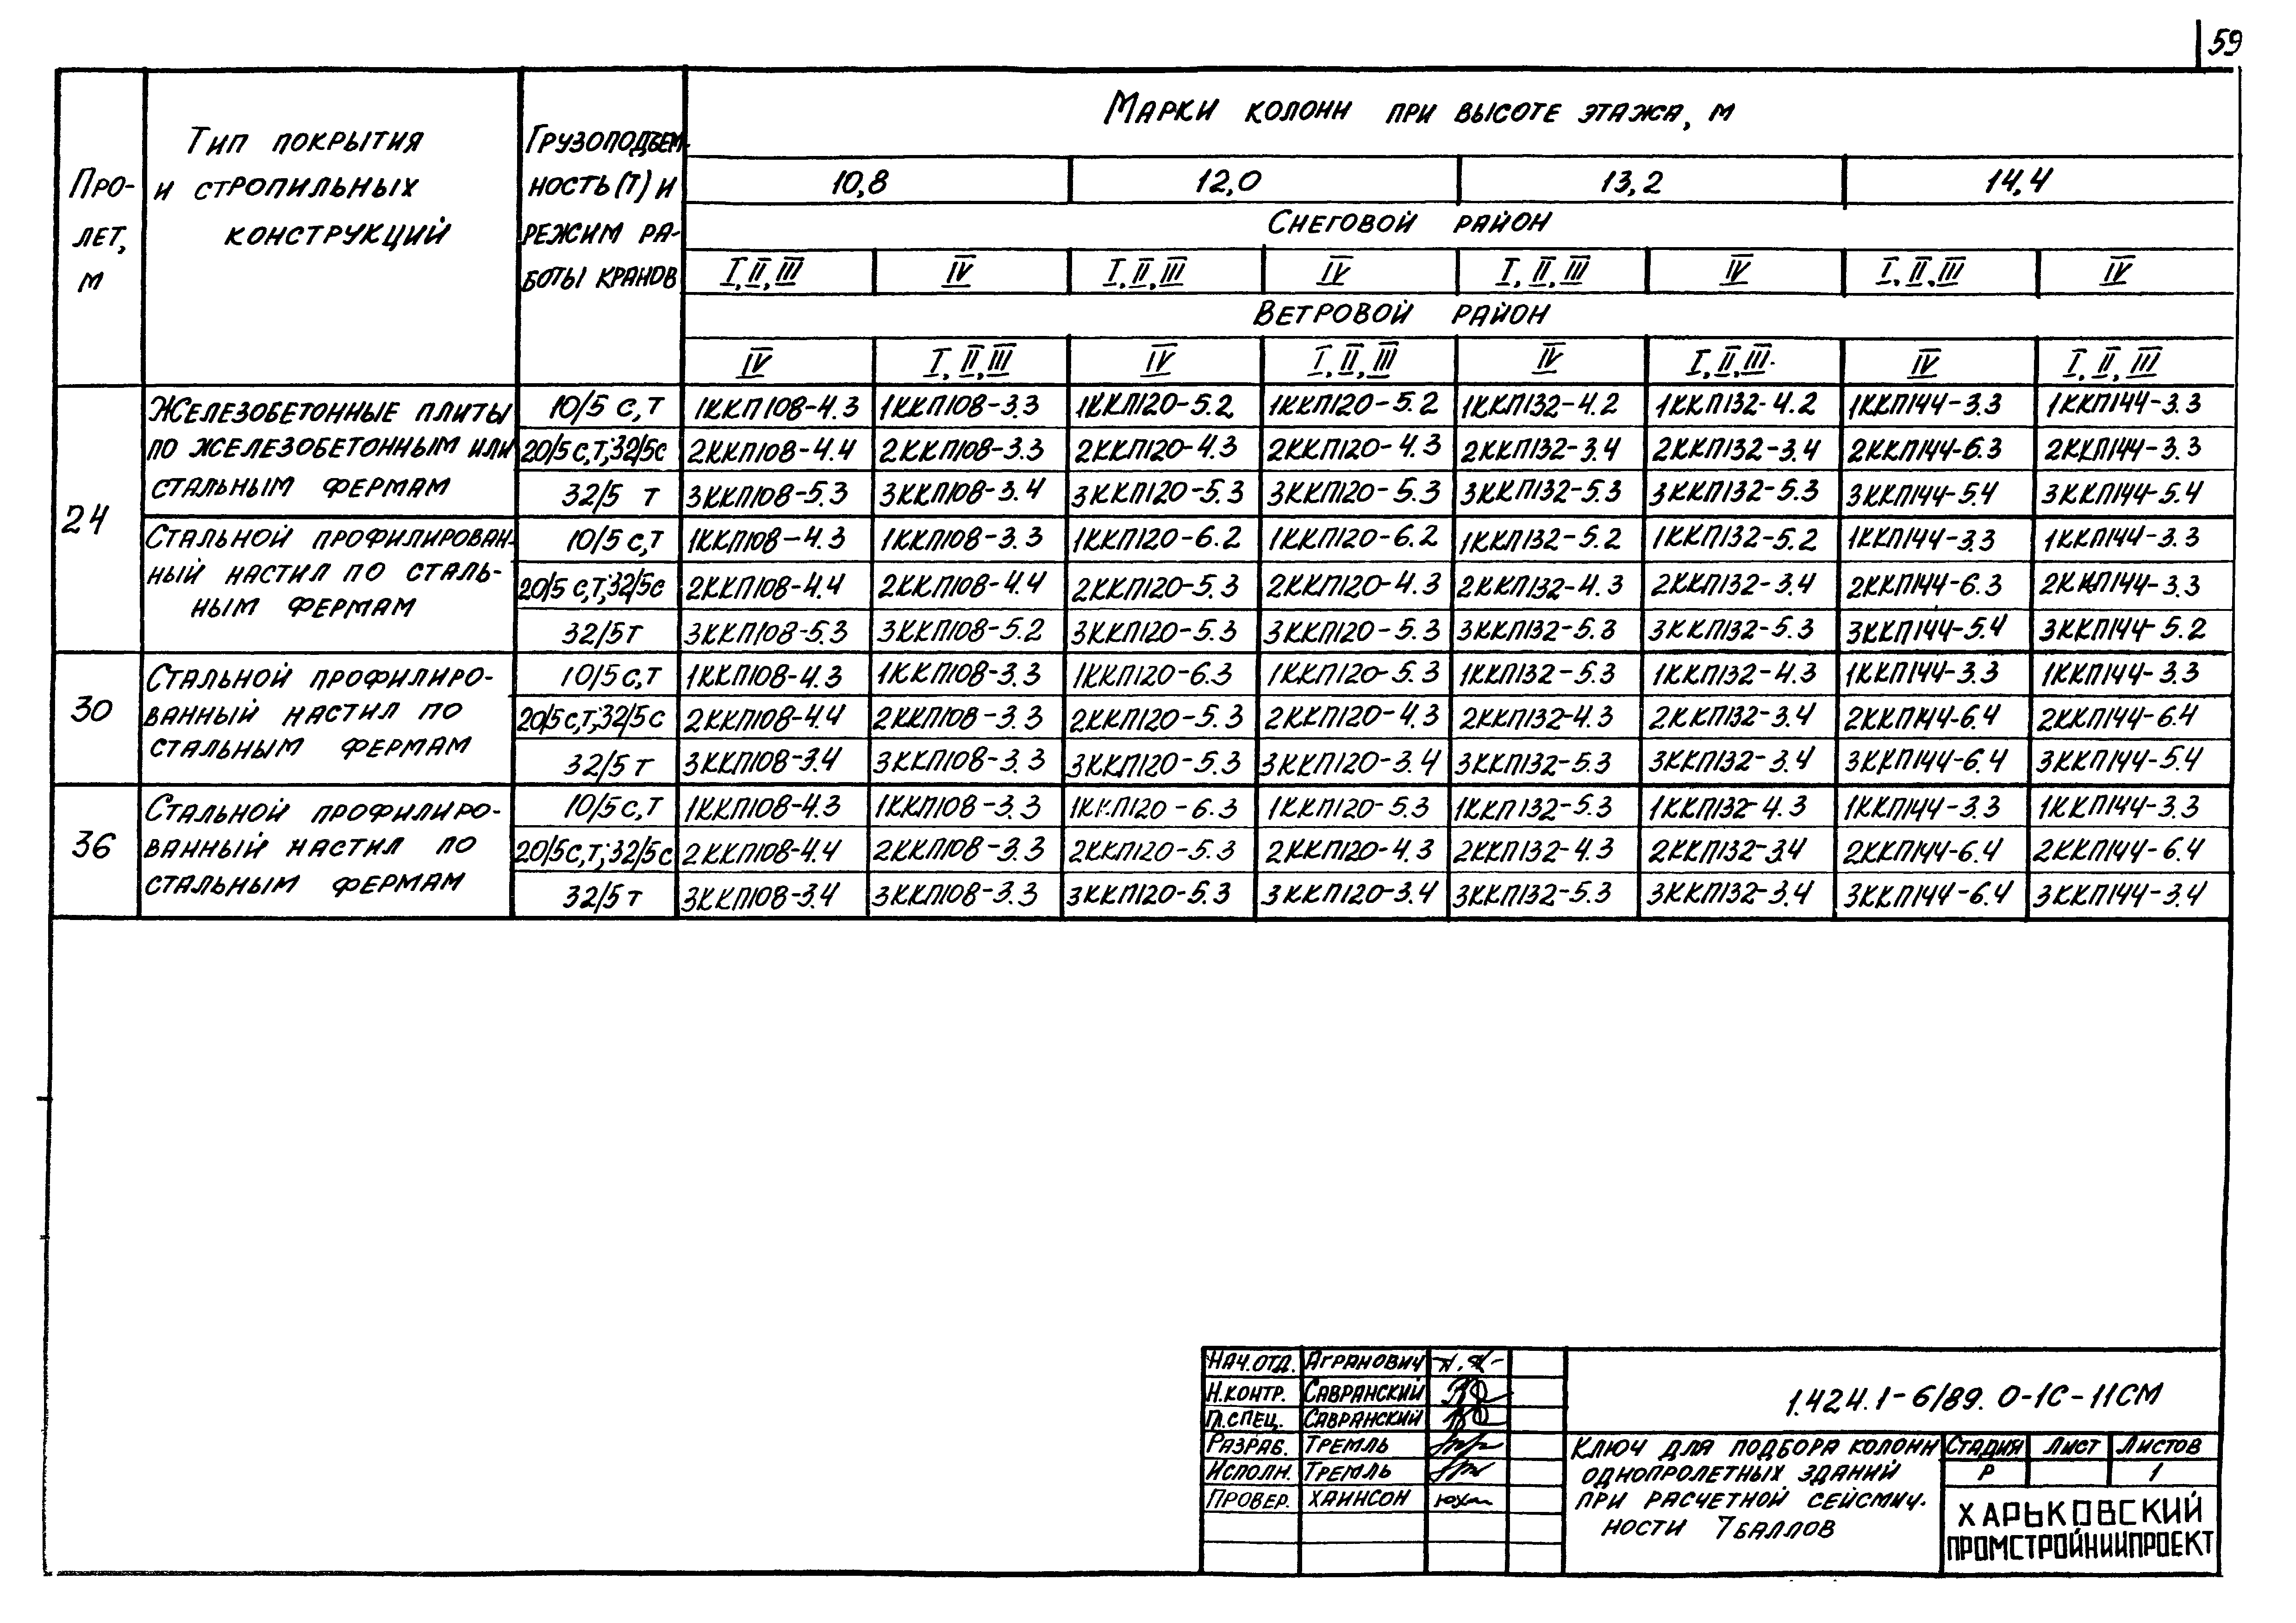 59
Марки колонн при высоте этажа, м
Про-
лет,
м
Тип покрытия
и стропильных
конструкций
Грузоподъем-
ность(т) и
режим ра-
боты кранов
10,8 12,0 13,2 14,4
Снеговой район
I, II, III IV I, II, III IV I, II, III IV I, II, III IV
Ветровой район
IV I, II, III IV I, II, III IV I, II, III IV I, II, III
24
Железобетонные плиты
по железобетонным или
стальным фермам
10/5 с,т 1ККП108-4.3 1ККП108-3.3 1ККП120-5.2 1ККП120-5.2 1ККП132-4.2 1ККП132-4.2 1ККП144-3.3 1ККП144-3.3
20/5 с,т; 32/5с 2ККП108-4.4 2ККП108-3.3 2ККП120-4.3 2ККП120-4.3 2ККП132-3.4 2ККП132-3.4 2ККП144-6.3 2ККП144-3.3
32/5 т 3ККП108-5.3 3ККП108-3.4 3ККП120-5.3 3ККП120-5.3 3ККП132-5.3 3ККП132-5.3 3ККП144-5.4 3ККП144-5.4
Стальной профилирован-
ный настил по сталь-
ным фермам
10/5 с,т 1ККП108-4.3 1ККП108-3.3 1ККП120-6.2 1ККП120-6.2 1ККП132-5.2 1ККП132-5.2 1ККП144-3.3 1ККП144-3.3
20/5 с,т; 32/5с 2ККП108-4.4 2ККП108-4.4 2ККП120-5.3 2ККП120-4.3 2ККП132-4.3 2ККП132-3.4 2ККП144-6.3 2ККП144-3.3
32/5т 3ККП108-5.3 3ККП108-5.2 3ККП120-5.3 3ККП120-5.3 3ККП132-5.3 3ККП132-5.3 3ККП144-5.4 3ККП144-5.2
30
Стальной профилиро-
ванный настил по
стальным фермам
10/5 с,т 1ККП108-4.3 1ККП108-3.3 1ККП120-6.3 1ККП120-5.3 1ККП132-5.3 1ККП132-4.3 1ККП144-3.3 1ККП144-3.3
20/5 с,т; 32/5 с 2ККП108-4.4 2ККП108-3.3 2ККП120-5.3 2ККП120-4.3 2ККП132-4.3 2ККП132-3.4 2ККП144-6.4 2ККП144-6.4
32/5 т 3ККП108-3.4 3ККП108-3.3 3ККП120-5.3 3ККП120-3.4 3ККП132-5.3 3ККП132-3.4 3ККП144-6.4 3ККП144-5.4
36
Стальной профилиро-
ванный настил по
стальным фермам
10/5 с,т 1ККП108-4.3 1ККП108-3.3 1ККП120-6.3 1ККП120-5.3 1ККП132-5.3 1ККП132-4.3 1ККП144-3.3 1ККП144-3.3
20/5 с,т; 32/5 с 2ККП108-4.4 2ККП108-3.3 2ККП120-5.3 2ККП120-4.3 2ККП132-4.3 2ККП132-3.4 2ККП144-6.4 2ККП144-6.4
32/5 т 3ККП108-3.4 3ККП108-3.3 3ККП120-5.3 3ККП120-3.4 3ККП132-5.3 3ККП132-3.4 3ККП144-6.4 3ККП144-3.4
Нач.отд. Агранович
Н.контр. Савранский
Гл.спец. Савранский
Разраб. Тремль
Исполн. Тремль
Провер. Хаинсон
1.424.1-6/89. 0-1С-11СМ
Ключ для подбора колонн
однопролетных зданий
при расчетной сейсмич-
ности 7 баллов
Стадия Лист Листов
Р 1
ХАРЬКОВСКИЙ
ПРОМСТРОЙНИИПРОЕКТ